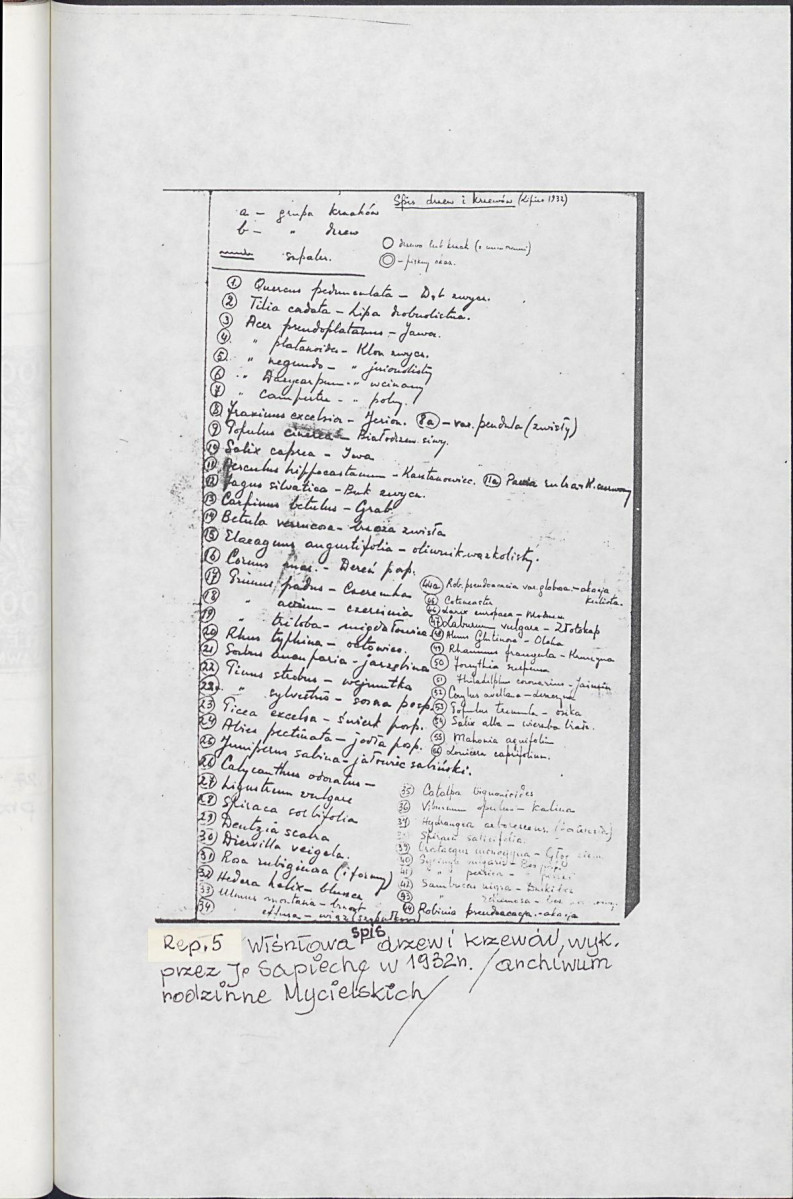 Spis drzew i krzewów (Lipiec 1932)
a - grupa krzaków
b - " drzew
szpaler.
drzewo lub krzak (z numerami)
① Quercus pedunculata - Dąb zwycz.
② Tilia cordata - Lipa drobnolistna.
③ Acer pseudoplatanus - Jawor.
④ " platanoides - Klon zwycz.
⑤ " negundo - " jesionolistny
⑥ " Dasycarpum - " wcinany
⑦ " campestre - " polny.
⑧ Fraxinus excelsior - Jesion. (8a) - var. pendula (zwisły)
⑨ Populus cinerea - Białodrzew siwy.
⑩ Salix caprea - Iwa
⑪ Aesculus hippocastanum - Kasztanowiec. (11a) Pavia rubra K. czerwony
⑫ Fagus silvatica - Buk zwycz.
⑬ Carpinus betulus - Grab
⑭ Betula verrucosa - brzoza zwisła
⑮ Elaeagnus angustifolia - oliwnik wązkolistny.
⑯ Cornus mas. - Dereń posp.
⑰ Prunus padus - Czeremcha
⑱ " avium - czereśnia
⑲ " triloba - migdałowiec
⑳ Rhus typhina - octowiec.
㉑ Sorbus aucuparia - jarzębina
㉒ Pinus strobus - wejmutka
22a. " sylvestris - sosna posp.
㉓ Picea excelsa - świerk posp.
㉔ Abies pectinata - jodła posp.
㉕ Juniperus sabina - jałowiec sabiński.
㉖ Calycanthus odoratus -
㉗ Ligustrum vulgare
㉘ Spiraea sorbifolia
㉙ Deutzia scabra
㉚ Diervilla veigela.
㉛ Rosa rubiginosa (i formy)
㉜ Hedera helix - bluszcz
㉝ Ulmus montana - brzost
㉞ effusa - wiąz (szypułkowy)
(44a) Rob. pseudoacacia var. globosa - akacja kulista.
㊺ Cotoneaster
㊻ Larix europaea - Modrzew
㊼ Laburnum vulgare - Złotokap
㊽ Alnus Glutinosa - Olcha
㊾ Rhamnus frangula - Kruszyna
㊿ Forsythia suspensa
(51) Philadelphus coronarius - Jaśmin
(52) Corylus avellana - leszczyna
(53) Populus tremula - osika
(54) Salix alba - wierzba biała.
(55) Mahonia aquifolium
(56) Lonicera caprifolium.
(35) Catalpa bignonioides
(36) Viburnum opulus - Kalina
(37) Hydrangea arborescens
(38) Spiraea salicifolia.
(39) Crataegus monogyna - Głóg
(40) Syringa vulgaris - Bez
(41) " persica - "
(42) Sambucus nigra
(43) " racemosa - bez
(44) Robinia pseudoacacia - akacja
Rep.5 Wiśniowa spis drzew i krzewów, wyk.
przez J. Sapiechę w 1932r. / archiwum
rodzinne Mycielskich /